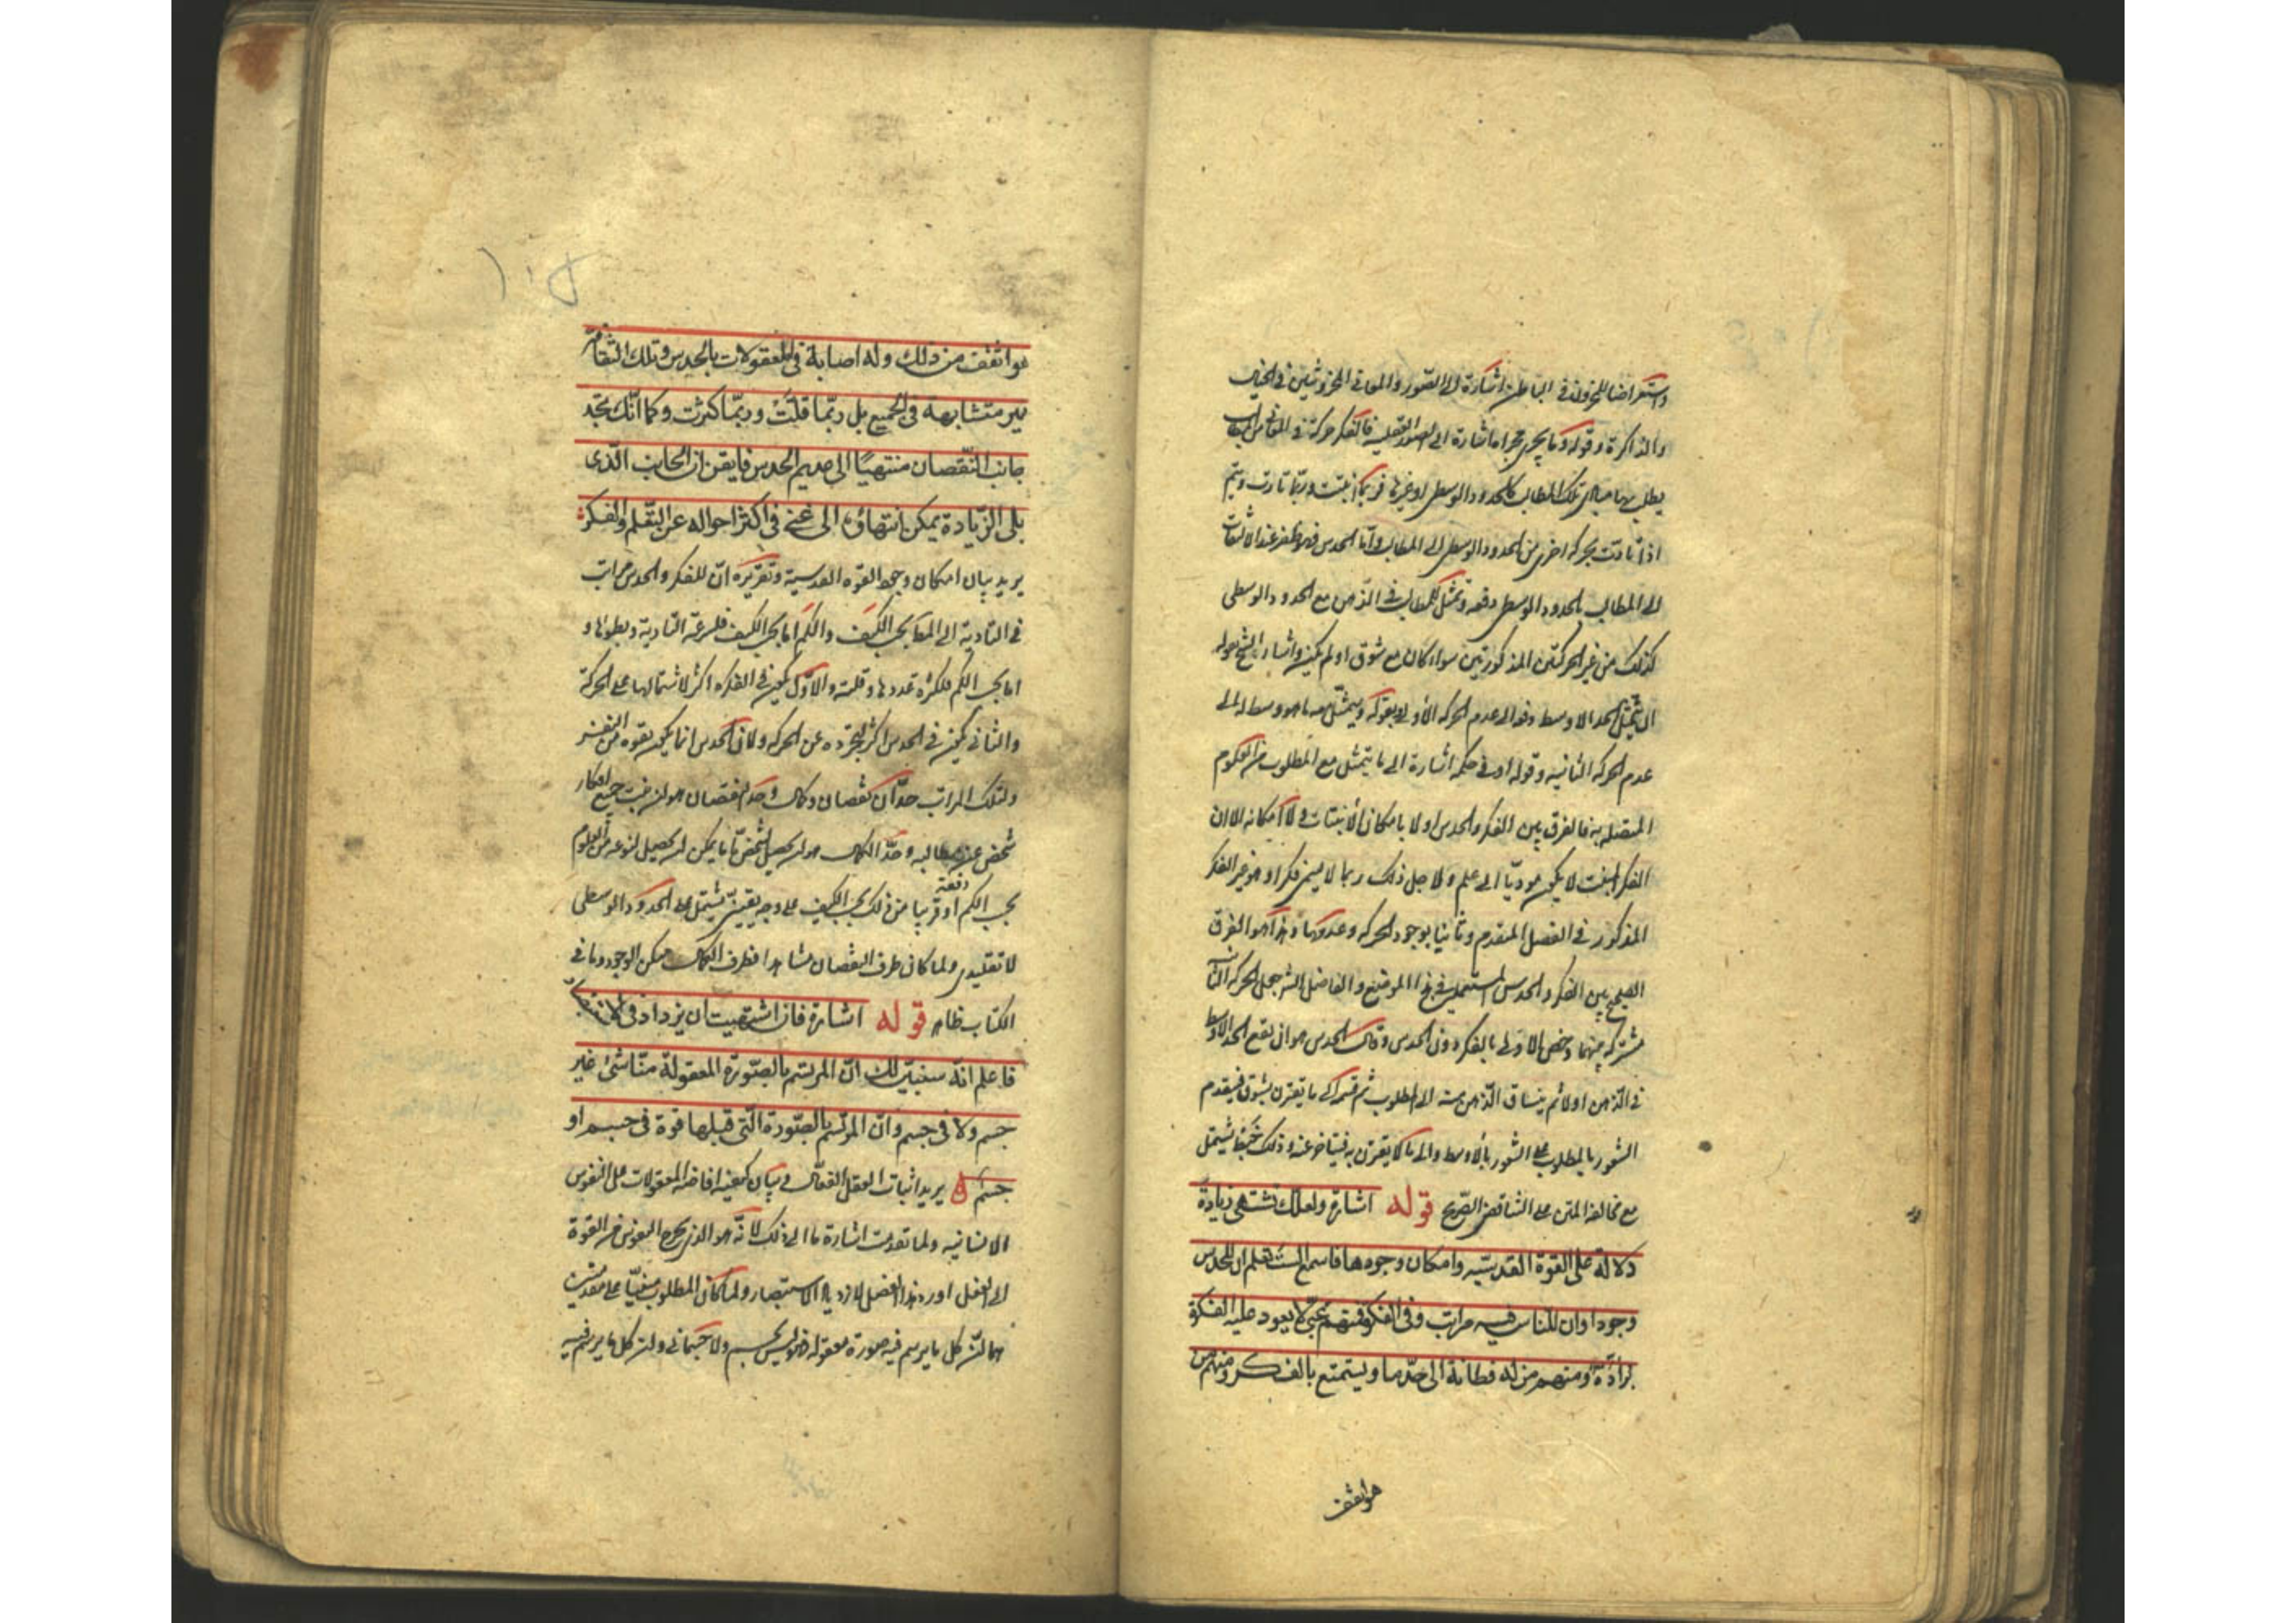 واستعراضا للمخزون في الباطن اشارة الى الصور والمعاني المخزونتين في الخيال
والذاكرة وقوله وما يجري مجراه اشارة الى الصور العقلية فالفكر حركة في المعاني من المطالب
يطلب بها مبادي تلك المطالب كالحدود الوسطى او غيرها فربما انبتت وربما تادت ويتم
اذا تادت بحركة اخرى من الحدود الوسطى الى المطالب واما الحدس فهو ظفر عند الالتفات
الى المطالب بالحدود الوسطى دفعه وتمثل المطالب في الذهن مع الحدود الوسطى
كذلك من غير الحركتين المذكورتين سواء كان مع شوق او لم يكن واشار الشيخ بقوله
ان يتمثل الحد الاوسط دفعه الى عدم الحركه الأولى وبقوله ويتمثل معه ما هو وسط له الى
عدم الحركه الثانيه وقوله او في حكمه اشارة الى ما يتمثل مع المطلوب من العلوم
المتصله به فالفرق بين الفكر والحدس اولا بامكان الانبتات ولا امكانه الا ان
الفكر المنبت لا يكون مودّيا الى علم ولاجل ذلك ربما لا يسمى فكرا وهو غير الفكر
المذكور في الفصل المتقدم وثانيا بوجود الحركه وعدمها وهذا هو الفرق
الصحيح بين الفكر والحدس المستعملين في هذا الموضع والفاضل الشارح جعل الحركه الثانية
مشتركه بينهما وخص الاولى بالفكر دون الحدس وقال الحدس هو ان يقع الحد الاوسط
في الذهن اولا ثم ينساق الذهن منه الى المطلوب ثم قسمه الى ما يقترن بشوق فيتقدم
الشعور بالمطلوب على الشعور بالأوسط والى ما لا يقترن به فيتاخر عنه وذلك خبط يشتمل
مع مخالفة المتن على التناقض الصريح قوله اشارة ولعلك تشتهى زيادة
دلالة على القوة القدسيّه وامكان وجودها فاسمع الست تعلم ان للحدس
وجودا وان للناس فيه مراتب وفى الفكر فمنهم غبىّ لا يعود عليه الفكرة
برادّة ومنهم من له فطانة الى حدّ ما ويستمتع بالفكر ومنهم من
هو اثقف
هو اثقف من ذلك وله اصابة فى المعقولات بالحدس وتلك الثقافة
غير متشابهة فى الجميع بل ربّما قلّت وربّما كثرت وكما انّك تجد
جانب النّقصان منتهيًا الى عديم الحدس فايقن ان الجانب الّذى
يلى الزّيادة يمكن انتهاؤه الى غنى فى اكثر احواله عن التعلّم والفكرة
يريد بيان امكان وجود القوة القدسية وتقريره انّ للفكر والحدس مراتب
في التادية الى المطا بحسب الكيف والكم اما بحسب الكيف فلسرعة التادية وبطوئها و
اما بحسب الكم فلكثرة عددها وقلته والاوّل يكون في الفكره اكثر لاشتمالها على الحركة
والثاني يكون في الحدس اكثر لتجرده عن الحركه ولان الحدس انما يكون بقوه من النفس
ولتلك المراتب حدّان نقصان وكمال وحد النقصان هو ان ينبت جميع افكار
شخص عن مطالبه وحدّ الكمال هو ان يحصل لشخص ما ما يمكن ان يحصل لنوعه من العلوم
بحسب الكم دفعة او قريبا من ذلك بحسب الكيف على وجه يقينيّ يشتمل على الحدود الوسطى
لا تقليدي ولما كان طرف النقصان مشاهدا فطرف الكمال ممكن الوجود وما في
الكتاب ظاهر قوله اشارة فان اشتهيت ان يزداد فى الاستبصار
فاعلم انّه سنبيّن لك انّ المرتسم بالصّورة المعقولة منّا شئ غير
جسم ولا فى جسم وانّ المرتسم بالصّورة الّتى قبلها قوة فى جسم او
جسم يريد اثبات العقل الفعال وبيان كيفيه افاضه المعقولات على النفوس
الانسانيه ولما تقدمت اشارة ما الى ذلك لانّه هو الذي يخرج النفوس من القوة
الى الفعل اورد هذا الفصل لازدياد الاستبصار ولما كان المطلوب مبنيّا على مقدمتين
هما انّ كل ما يرتسم فيه صورة معقوله فهو ليس بجسم ولا جسماني وان كل ما يرتسم فيه